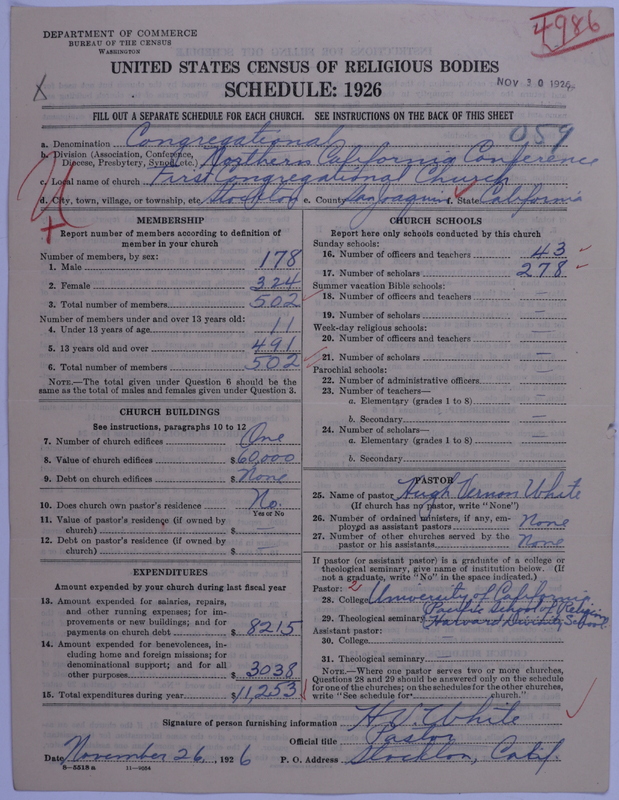 4986
DEPARTMENT OF COMMERCE
BUREAU OF THE CENSUS
WASHINGTON
UNITED STATES CENSUS OF RELIGIOUS BODIES
SCHEDULE: 1926
NOV 30 1926
X
FILL OUT A SEPARATE SCHEDULE FOR EACH CHURCH. SEE INSTRUCTIONS ON THE BACK OF THIS SHEET
059
a. Denomination Congregational
b. Division (Association, Conference, Diocese, Presbytery, Synod, etc.) Northern California Conference
c. Local name of church First Congregational Church
d. City, town, village, or township, etc. Stockton e. County San Joaquin f. State California
MEMBERSHIP
Report number of members according to definition of
member in your church
Number of members, by sex:
1. Male 178
2. Female 324
3. Total number of members 502
Number of members under and over 13 years old:
4. Under 13 years of age 11
5. 13 years old and over 491
6. Total number of members 502
NOTE.—The total given under Question 6 should be
same as the total of males and females given under Question 3.
CHURCH BUILDINGS
See instructions, paragraphs 10 to 12
7. Number of church edifices One
8. Value of church edifices $60,000
9. Debt on church edifices $None
10. Does church own pastor's residence No
Yes or No
11. Value of pastor's residence (if owned by
church) $ —
12. Debt on pastor's residence (if owned by
church) $ —
EXPENDITURES
Amount expended by your church during last fiscal year
13. Amount expended for salaries, repairs,
and other running expenses; for im-
provements or new buildings; and for
payments on church debt $8215
14. Amount expended for benevolences, in-
cluding home and foreign missions; for
denominational support; and for all
other purposes $3038
15. Total expenditures during year $11,253
CHURCH SCHOOLS
Report here only schools conducted by this church
Sunday schools:
16. Number of officers and teachers 43
17. Number of scholars 278
Summer vacation Bible schools:
18. Number of officers and teachers —
19. Number of scholars —
Week-day religious schools:
20. Number of officers and teachers —
21. Number of scholars —
Parochial schools:
22. Number of administrative officers —
23. Number of teachers—
a. Elementary (grades 1 to 8) —
b. Secondary —
24. Number of scholars—
a. Elementary (grades 1 to 8) —
b. Secondary —
PASTOR
25. Name of pastor Hugh Vernon White
(If church has no pastor, write "None")
26. Number of ordained ministers, if any, em-
ployed as assistant pastors None
27. Number of other churches served by the
pastor or his assistants None
If pastor (or assistant pastor) is a graduate of a college or
theological seminary, give name of institution below. (If
not a graduate, write "No" in the space indicated.)
Pastor: 2
28. College University of California
Pacific School of Religion
29. Theological seminary Harvard Divinity School
Assistant pastor:
30. College —
31. Theological seminary
NOTE.—Where one pastor serves two or more churches,
Questions 28 and 29 should be answered only on the schedule
for one of the churches; on the schedules for the other churches,
write "See schedule for church."
Signature of person furnishing information H. V. White
Official title Pastor
Date November 26, 1926 P. O. Address Stockton, Calif.
8—5518 a 11—9054